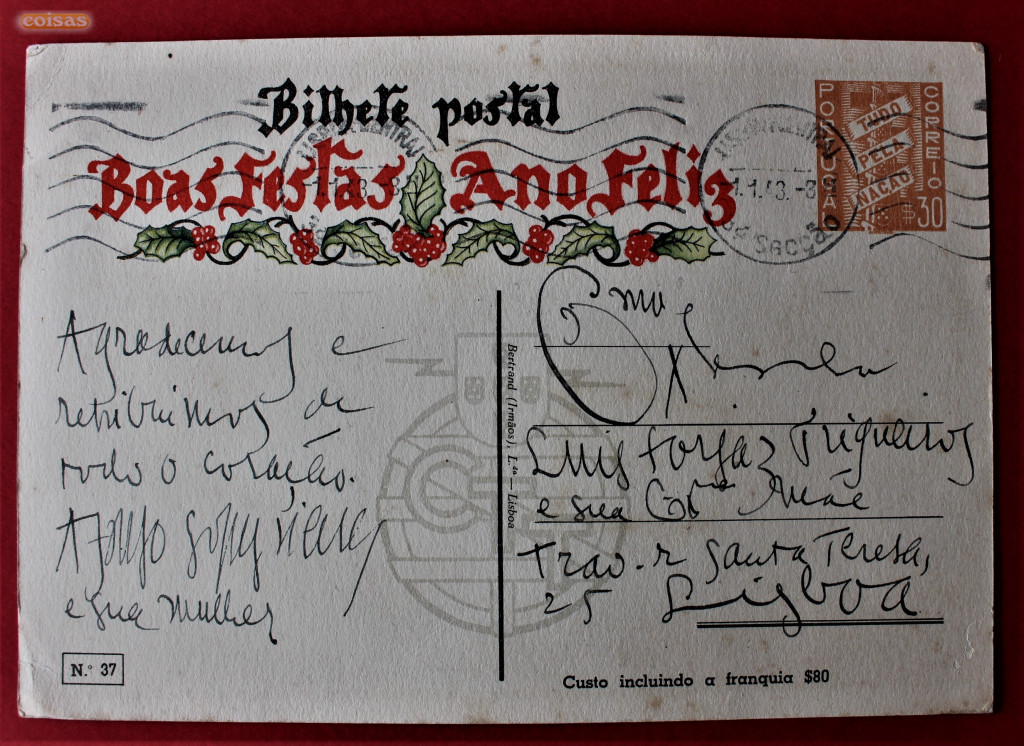 coisas
Bilhete postal
Boas Festas Ano Feliz
PORTUGAL
CORREIO
TUDO
PELA
NAÇÃO
$30
LISBOA CENTRAL
1.1.43.-8
3ª SECÇÃO
LISBOA CENTRAL
1.1.43.-8
3ª SECÇÃO
Agradecemos e
retribuimos de
todo o coração.
Afonso Lopes Vieira
e sua mulher
N.º 37
Bertrand (Irmãos), L.da — Lisboa
Exmo
Luis Forjaz Trigueiros
e sua Exma Mãe
Trav. de Santa Teresa,
25 Lisboa
Custo incluindo a franquia $80